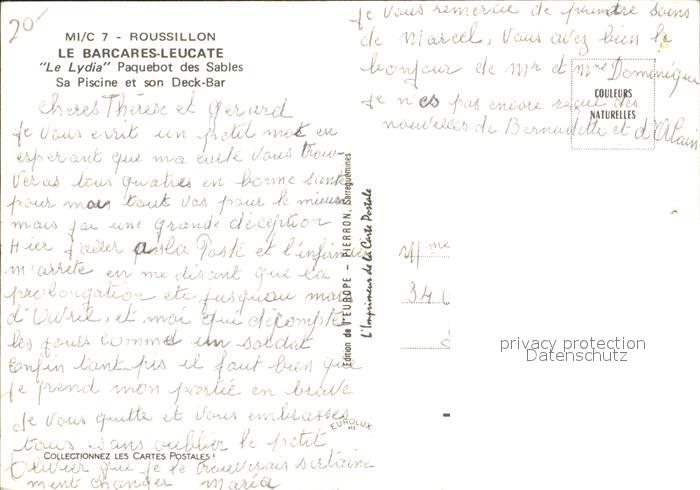 20
MI/C 7 - ROUSSILLON
LE BARCARES-LEUCATE
"Le Lydia" Paquebot des Sables
Sa Piscine et son Deck-Bar
Cheres Thérèse et Gerard
Je vous ecrit un petit mot en
esperant que ma carte vous trou-
veras tous quatres en bonne sante
pour moi tout vas pour le mieux
mais jai une grande déception
Hier j'aller a la Poste et l'infirmier
m'arrete en me disant que la
prolongation ete jusquau mois
d'Avril, et moi qui décompte
les jours comme un soldat
enfin tant pis il faut bien que
je prend mon partie en brave
Je vous quitte et vous embrasses
tous sans oublier le petit
Olivier que je le trouverais sertaine
ment changer Maria
COLLECTIONNEZ LES CARTES POSTALES!
Je vous remercie de prendre soins
de Marcel, vous avez bien le
bonjour de Mr et Mme Dominique
Je n'es pas encore reçu des
nouvelles de Bernadette et d'Alain
COULEURS
NATURELLES
Edition de l'EUROPE - PIERRON, Sarreguemines
L'Imprimeur de la Carte Postale
EUROLUX
Mme
34
privacy protection
Datenschutz